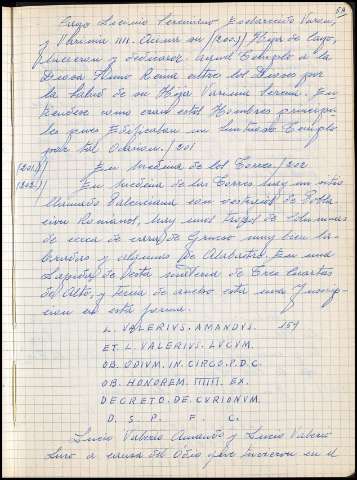 59
Cayo Licinio Serviano Esclarecido Varon,
y Varinia IIII. Acuna su /(200)/ Hija de Cayo,
hicieron y dedicaron aquel Templo a la
Diosa Juno Reina entre los Dioses por
la Salud de su Hija Varinia Serena. En
tiendese como eran estos Hombres principa
les pues Edificaban un Suntuoso Templo
por tal Ocasion. /201
/201)/ En Medina de las Torres /202
/202)/ En Medina de las Torres hay un sitio
llamado Valenciana con vestigios de Pobla
cion Romanos, hay unos trozos de Columnas
de cerca de vara de Grueso muy bien la-
bradas y algunas de Alabastro. En una
Lapida de esta materia de Tres Cuartas
de Alto, y tenia de ancho esta una Inscrip-
cion en esta forma.
L. VALERIVS. AMANDVS. 154
ET. L. VALERIVS. LVCVM.
OB. ODIVM. IN. CIRCO. P. D. C.
OB. HONOREM. IIIIII. EX.
DECRETO. DE CVRIONVM.
D. S. P. F. C.
Lucio Valerio Amando y Lucio Valerio
Luco a causa del Odio que tuvieron en el